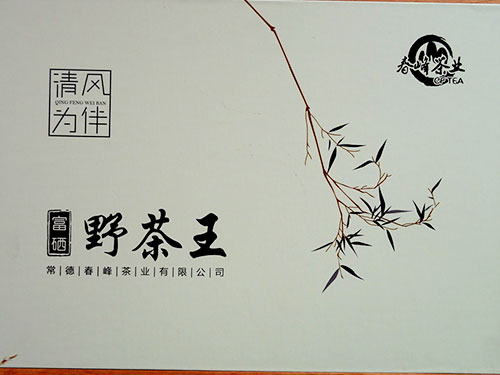 清风
QING FENG WEI BAN
为伴
春峰茶业
CF TEA
富硒
野茶王
常|德|春|峰|茶|业|有|限|公|司